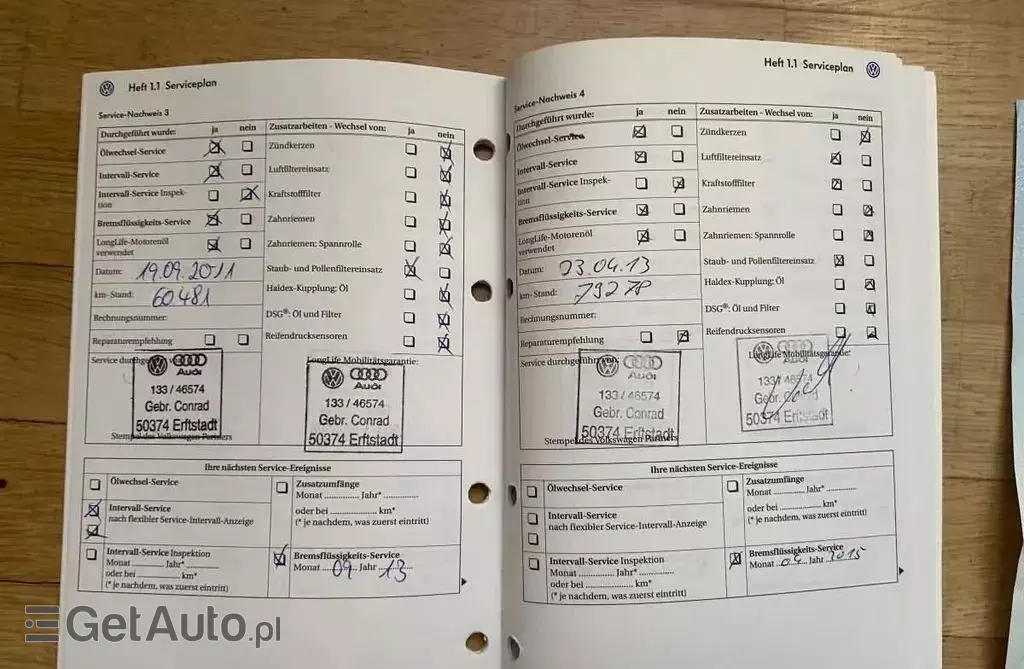 Heft 1.1 Serviceplan
Service-Nachweis 3
Durchgeführt wurde: ja nein Zusatzarbeiten - Wechsel von: ja nein
Ölwechsel-Service Zündkerzen
Intervall-Service Luftfiltereinsatz
Intervall-Service Inspek-
tion
Kraftstofffilter
Bremsflüssigkeits-Service Zahnriemen
LongLife-Motorenöl
verwendet
Zahnriemen: Spannrolle
Datum: 19.09.2011 Staub- und Pollenfiltereinsatz
km-Stand: 60481 Haldex-Kupplung: Öl
Rechnungsnummer: DSG®: Öl und Filter
Reparaturempfehlung Reifendrucksensoren
Service durchgeführt von: LongLife Mobilitätsgarantie:
Audi
133 / 46574
Gebr. Conrad
50374 Erftstadt
Audi
133 / 46574
Gebr. Conrad
50374 Erftstadt
Stempel des Volkswagen Partners
Ihre nächsten Service-Ereignisse
Ölwechsel-Service
Intervall-Service
nach flexibler Service-Intervall-Anzeige
Intervall-Service Inspektion
Monat ........ Jahr* ........
oder bei ........ km*
(* je nachdem, was zuerst eintritt)
Zusatzumfänge
Monat ........ Jahr* ........
oder bei ........ km*
(* je nachdem, was zuerst eintritt)
Bremsflüssigkeits-Service
Monat 09 Jahr 13
Heft 1.1 Serviceplan
Service-Nachweis 4
Durchgeführt wurde: ja nein Zusatzarbeiten - Wechsel von: ja nein
Ölwechsel-Service Zündkerzen
Intervall-Service Luftfiltereinsatz
Intervall-Service Inspek-
tion
Kraftstofffilter
Bremsflüssigkeits-Service Zahnriemen
LongLife-Motorenöl
verwendet
Zahnriemen: Spannrolle
Datum: 03.04.13 Staub- und Pollenfiltereinsatz
km-Stand: 79278 Haldex-Kupplung: Öl
Rechnungsnummer: DSG®: Öl und Filter
Reparaturempfehlung Reifendrucksensoren
Service durchgeführt von: LongLife Mobilitätsgarantie:
Audi
133 / 46574
Gebr. Conrad
50374 Erftstadt
133/ 46574
Gebr.
50374 Erftstadt
Stempel des Volkswagen Partners
Ihre nächsten Service-Ereignisse
Ölwechsel-Service
Intervall-Service
nach flexibler Service-Intervall-Anzeige
Intervall-Service Inspektion
Monat ........ Jahr* ........
oder bei ........ km*
(* je nachdem, was zuerst eintritt)
Zusatzumfänge
Monat ........ Jahr* ........
oder bei ........ km*
(* je nachdem, was zuerst eintritt)
Bremsflüssigkeits-Service
Monat 04 Jahr 2015
GetAuto.pl